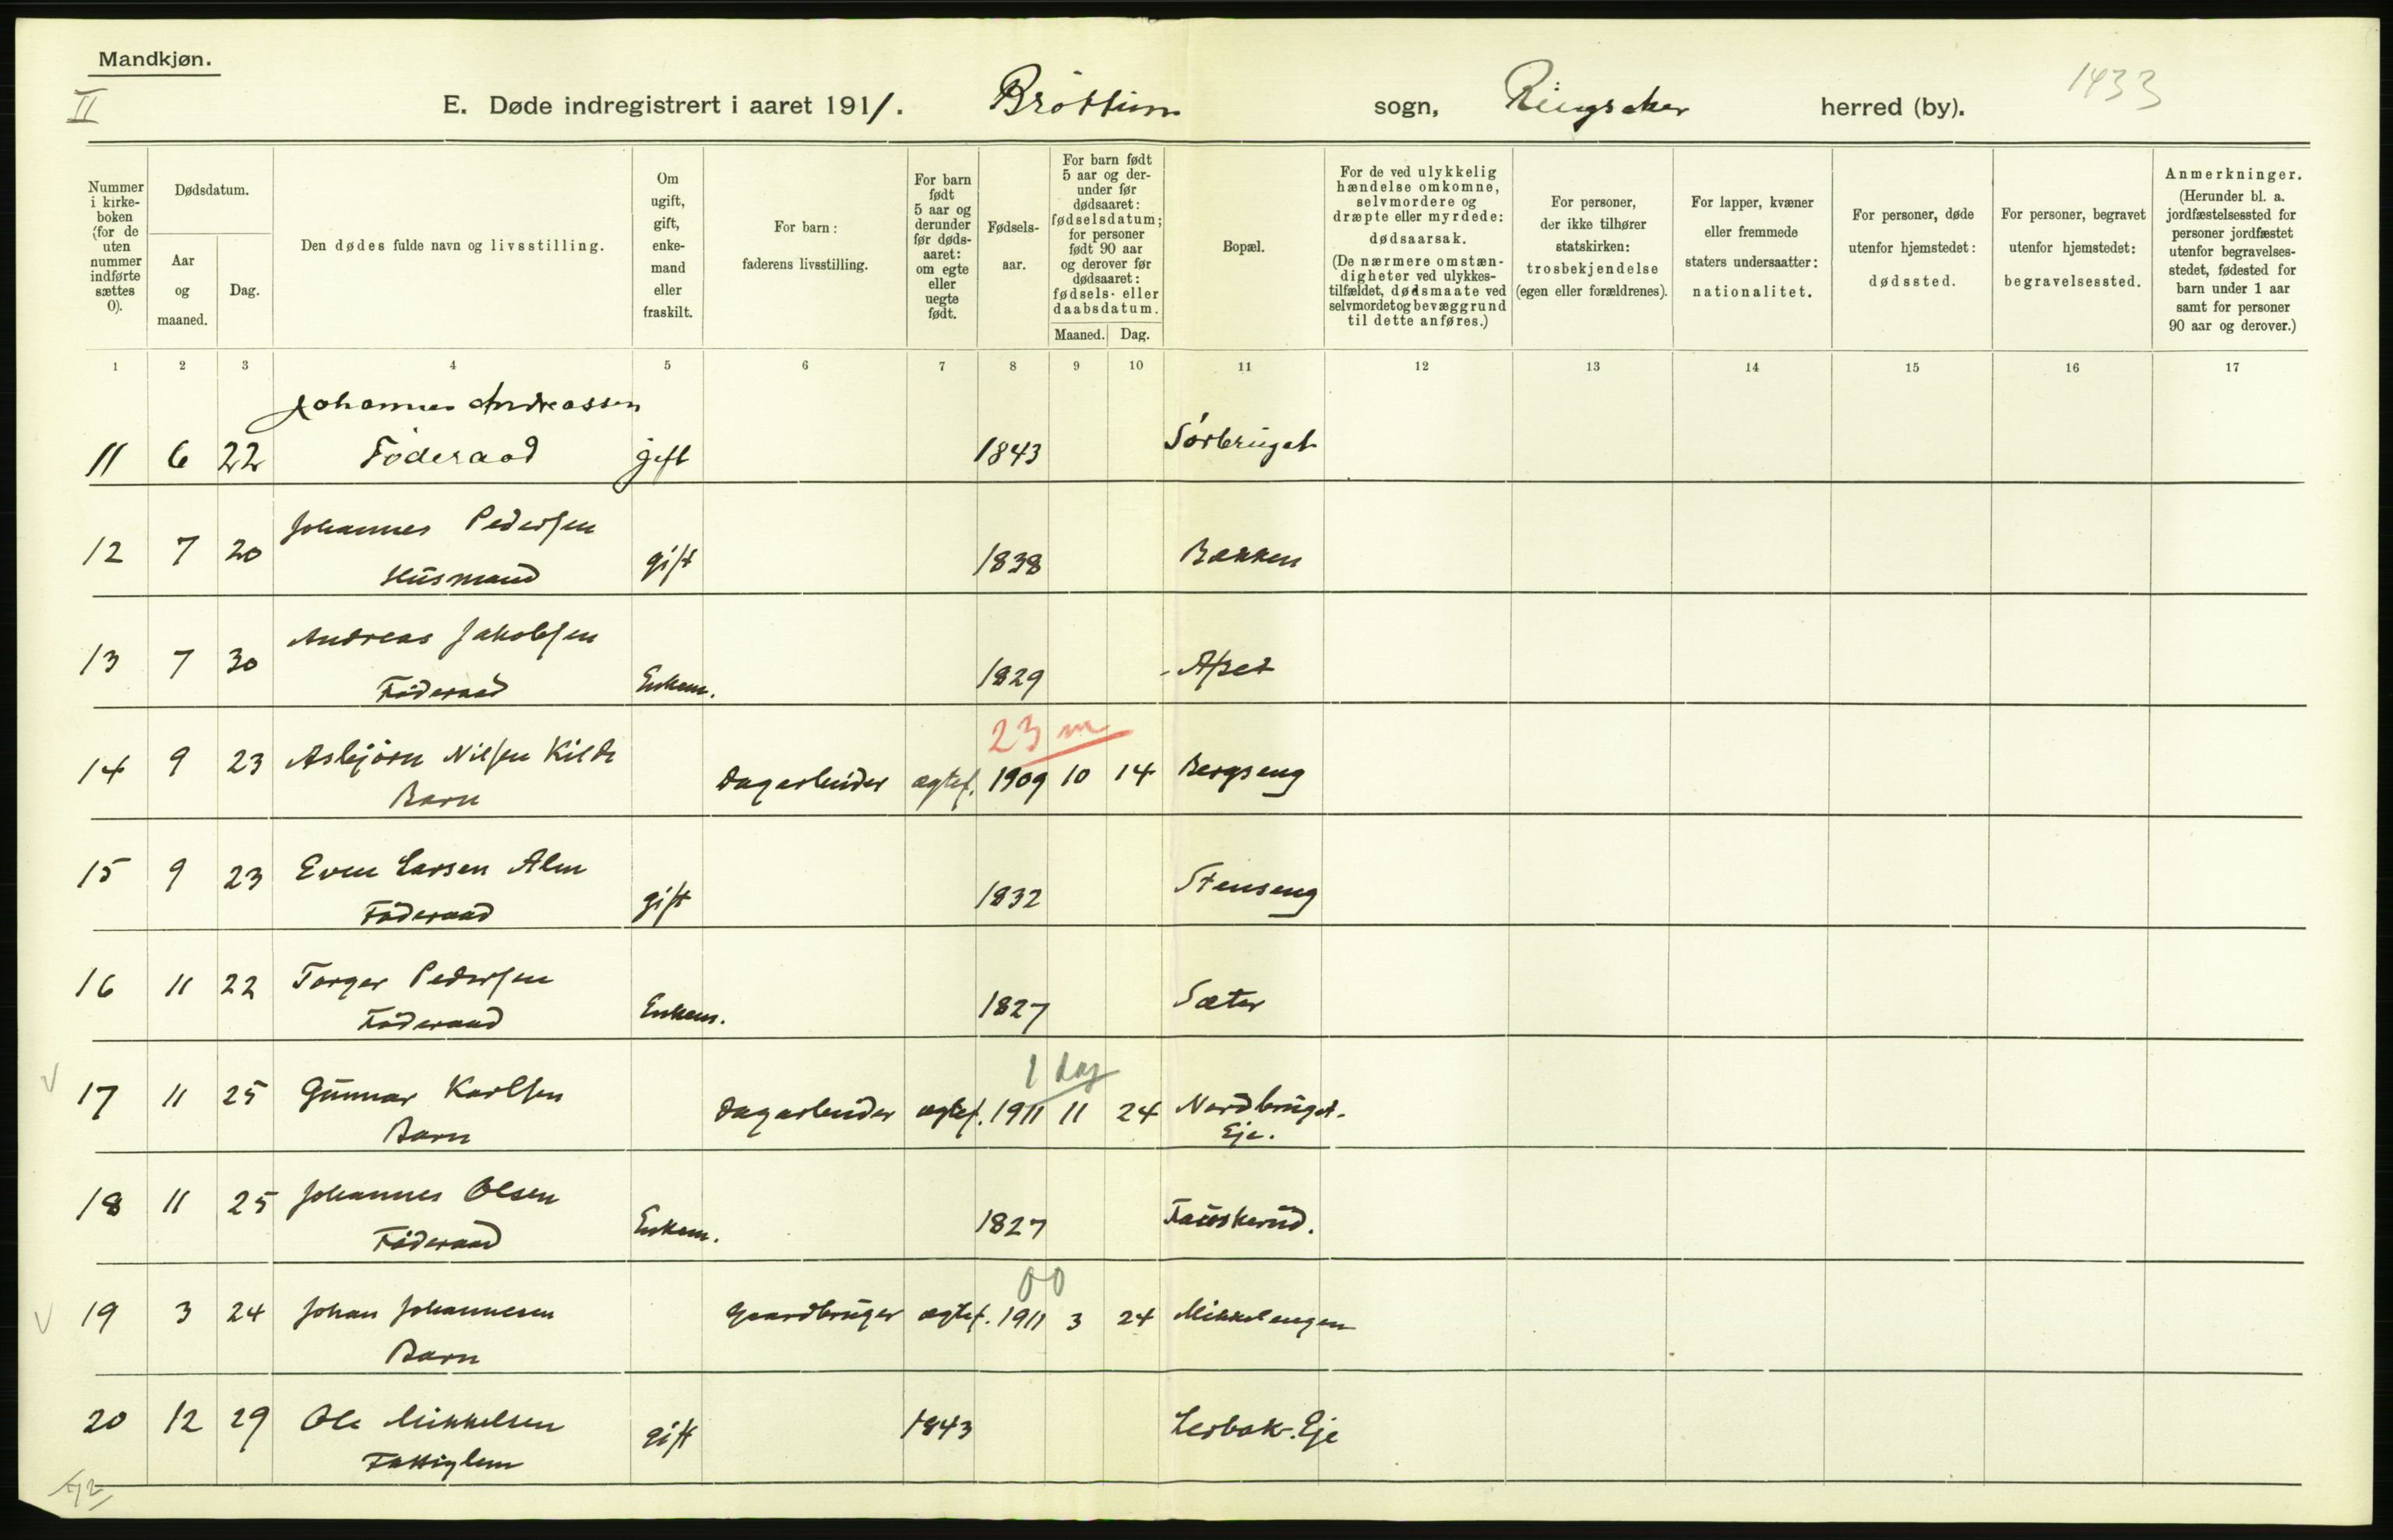 Mandkjøn.
II
E. Døde indregistrert i aaret 1911. Brøttum sogn, Ringsaker herred (by).
1433
Nummer i kirke-boken (for de uten nummer indførte sættes 0).
Dødsdatum.
Aar og maaned.
Dag.
Den dødes fulde navn og livsstilling.
Om ugift, gift, enke-mand eller fraskilt.
For barn: faderens livsstilling.
For barn født 5 aar og derunder før døds-aaret: om egte eller uegte født.
Fødsels-aar.
For barn født 5 aar og der-under før dødsaaret: fødselsdatum; for personer født 90 aar og derover før dødsaaret: fødsels- eller daabsdatum.
Maaned. Dag.
Bopæl.
For de ved ulykkelig hændelse omkomne, selvmordere og dræpte eller myrdede: dødsaarsak. (De nærmere omstæn-digheter ved ulykkes-tilfældet, dødsmaate ved selvmordet og bevæggrund til dette anføres.)
For personer, der ikke tilhører statskirken: trosbekjendelse (egen eller forældrenes).
For lapper, kvæner eller fremmede staters undersaatter: nationalitet.
For personer, døde utenfor hjemstedet: dødssted.
For personer, begravet utenfor hjemstedet: begravelsessted.
Anmerkninger. (Herunder bl. a. jordfæstelsessted for personer jordfæstet utenfor begravelses-stedet, fødested for barn under 1 aar samt for personer 90 aar og derover.)
1 2 3 4 5 6 7 8 9 10 11 12 13 14 15 16 17
Johannes Andreassen
11 6 22 Föderaad gift 1843 Sörbruget
Johannes Pedersen
12 7 20 Husmand gift 1838 Bakken
Andreas Jakobsen
13 7 30 Föderaad Enkem. 1829 Apset
23 m
14 9 23 Asbjörn Nilsen Kilde Dagarbeider ægtef. 1909 10 14 Bergseng
Barn
15 9 23 Even Larsen Alm gift 1832 Stenseng
Föderaad
16 11 22 Torger Pedersen Enkem. 1827 Sæter
Föderaad
1 dag
17 11 25 Gunnar Karlsen Dagarbeider ægtef. 1911 11 24 Nordbruget-
Barn Eje.
18 11 25 Johannes Olsen Enkem. 1827 Fauskerud.
Föderaad
00
19 3 24 Johan Johannesen Gaardbruger ægtef. 1911 3 24 Mikkelengen
Barn
20 12 29 Ole Mikkelsen gift 1843 Lerbak-Eje
Fattiglem